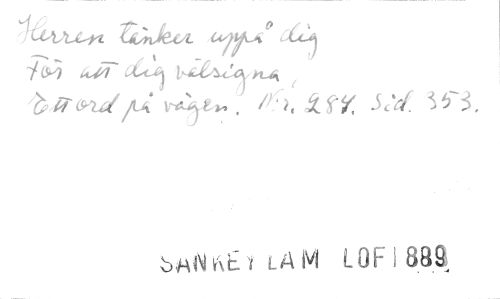 Herren tänker uppå dig
För att dig välsigna,
Ett ord på vägen. Nr. 284. Sid. 353.
SANKEY LAM LOFT 889